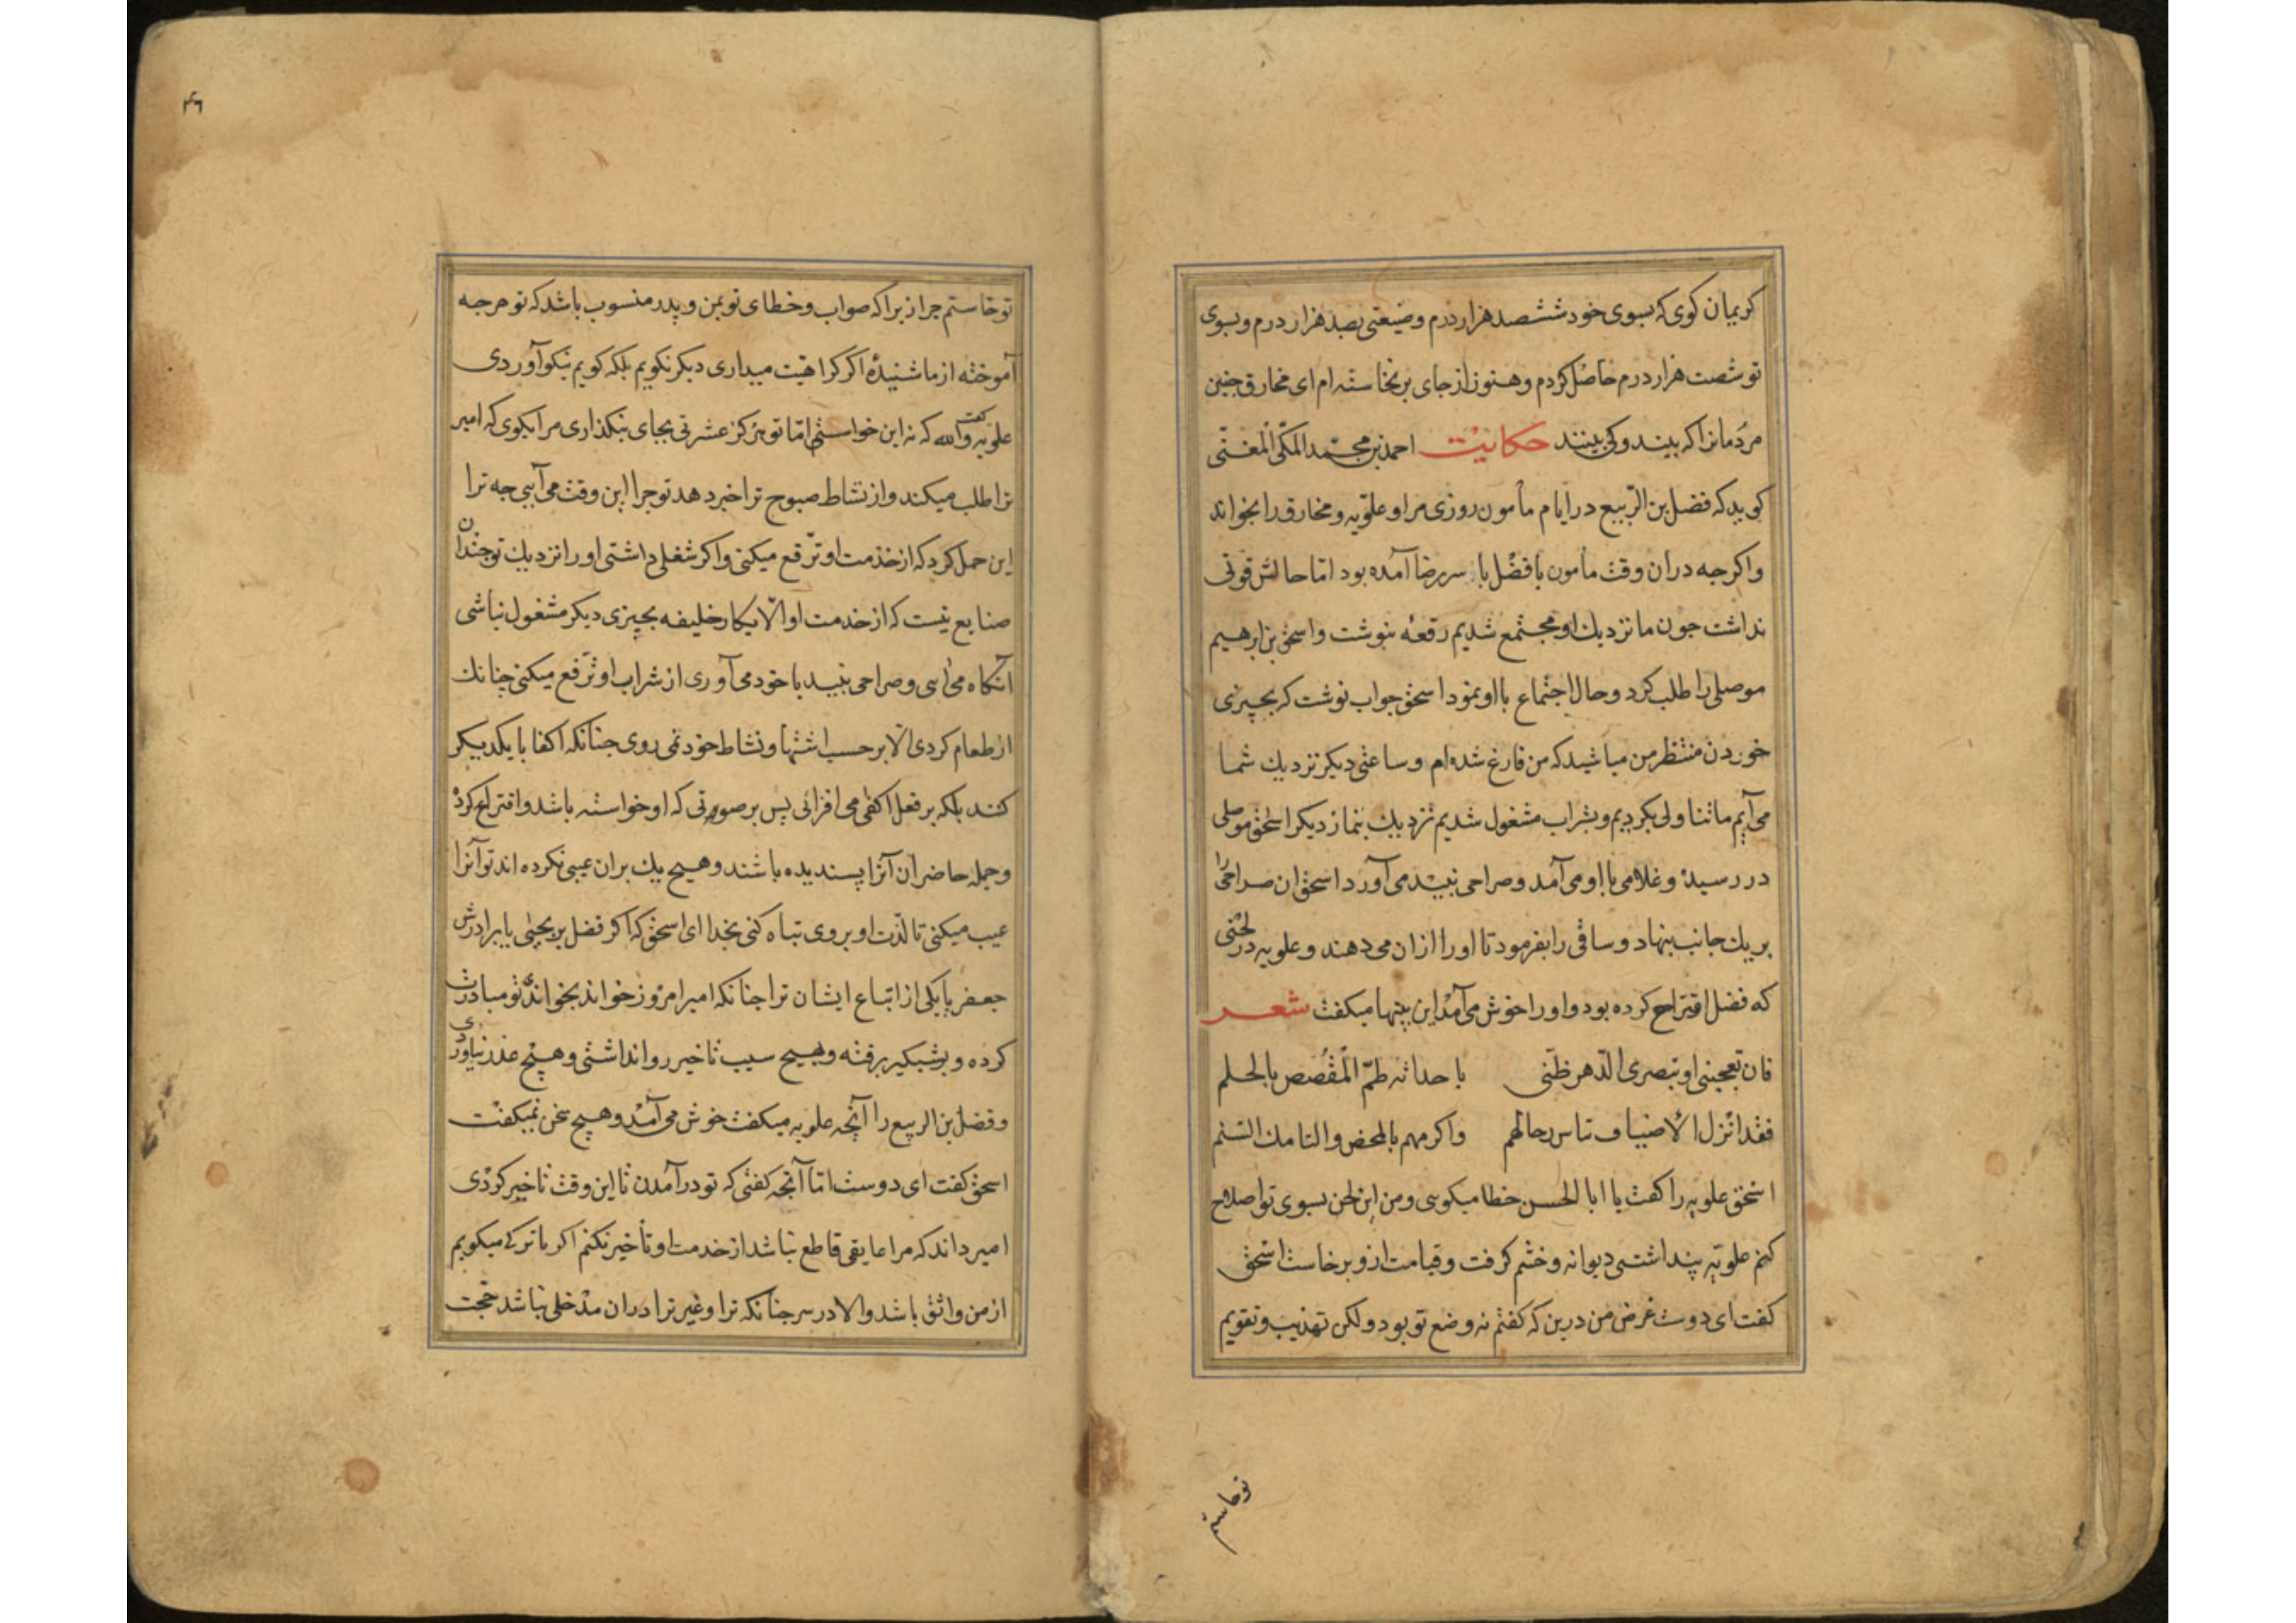 کریمان کوی که بسوی خود ششصد هزار درم و ضیعتی بصد هزار درم و بسوی
تو شصت هزار درم حاصل کردم و هنوز از جای برنخاسته ام ای مخارق چنین
مردمانرا که بیند و کی بینند حکایت احمد بن محمد المکی المغنّی
کوید که فضل بن الرّبیع در ایام مأمون روزی مرا و علّویه و مخارق را بخواند
واکرجه دران وقت مأمون با فضل با سر رضا آمده بود اما حالش قوتی
نداشت جون ما نزدیك او مجتمع شدیم رقعهٔ بنوشت و اسحق بن ابرهیم
موصلی را طلب کرد و حال اجتماع با او بنمود اسحق جواب نوشت که بچیزی
خوردن منتظر من مباشید که من فارغ شده ام و ساعتی دیکر نزدیك شما
می آیم ما تناولی بکردیم و بشراب مشغول شدیم نزدیك بنماز دیکر اسحق موصلی
در رسید و غلامی با او می آمد و صراحی نبید می آورد اسحق ان صراحی را
بریك جانب بنهاد و ساقی را بفرمود تا او را ازان می دهند و علویه در لحنی
که فضل اقتراح کرده بود و او را خوش می آمد این بیتها میکفت شعر
فان تعجبنی او تبصری الدّهر ظنّی باحداثه طمّ المقصص بالجلم
فقد انزل الأضیاف تاس رحالهم واکرمهم بالمحض والتامك السّنم
اسحق علویه را کفت یا ابا الحسن خطا میکوی و من این لحن بسوی تو اصلاح
کنم علویّه پنداشتی دیوانه و خشم کرفت و قیامت ازو برخاست اسحق
کفت ای دوست غرض من درین که کفتم نه وضع تو بود ولکن تهذیب و تقویم
تو خاستم
۴۶
تو خاستم جرا زیرا که صواب و خطای تو بمن و پدر منسوب باشد که تو هرجه
آموختهٔ از ما شنیدهٔ اکر کراهیت میداری دیکر نکویم بلکه کویم نیکو آوردی
علویه کفت والله که نه این خواستی اما تو هرکز عشرتی بجای نبکذاری مرا بکوی که امیر
ترا طلب میکند و از نشاط صبوح ترا خبر دهد تو جرا این وقت می آیی جه ترا
این حمل کرد که از خذمت او ترّفع میکنی واکر شغلی داشتی او را نزدیك تو جندان
صنایع نیست که از خدمت او الّا بکار خلیفه بچیزی دیکر مشغول نباشی
آنکاه می ایی و صراحی نبید با خود می آوری از شراب او ترّفع میکنی چنانك
از طعام کردی الا بر حسب اشتها و نشاط خود نمی روی جنانکه اکفا با یکدیکر
کنند بلکه بر فعل اکفی می افزائی پس بر صورتی که او خواسته باشد و اقتراح کرد
و جمله حاضران آنرا پسندیده باشند و هیچ یك بران عیبی نکرده اند تو آنرا
عیب میکنی تا لذّت او بروی تباه کنی بخدا ای اسحق که اکر فضل بن یحیی یا برادرش
جعفر یا یکی از اتباع ایشان ترا جنانکه امیر امروز خواند بخواندی تو مبادرت
کرده و بشبکیر برفته و بهیچ سبب تاخیر روا نداشتی و هیچ عذر نیاوردی
و فضل بن الربیع را آنچه علویه میکفت خوش می آمد و هیچ سخن نمیکفت
اسحق کفت ای دوست اما آنچه کفتی که تو در آمدن تا این وقت تاخیر کردی
امیر داند که مرا عایقی قاطع نباشد از خدمت او تأخیر نکنم اکر با تو کی میکویم
از من واثق باشد والا در سر جنانکه ترا و غیر ترا دران مدخلی نباشد حجّت